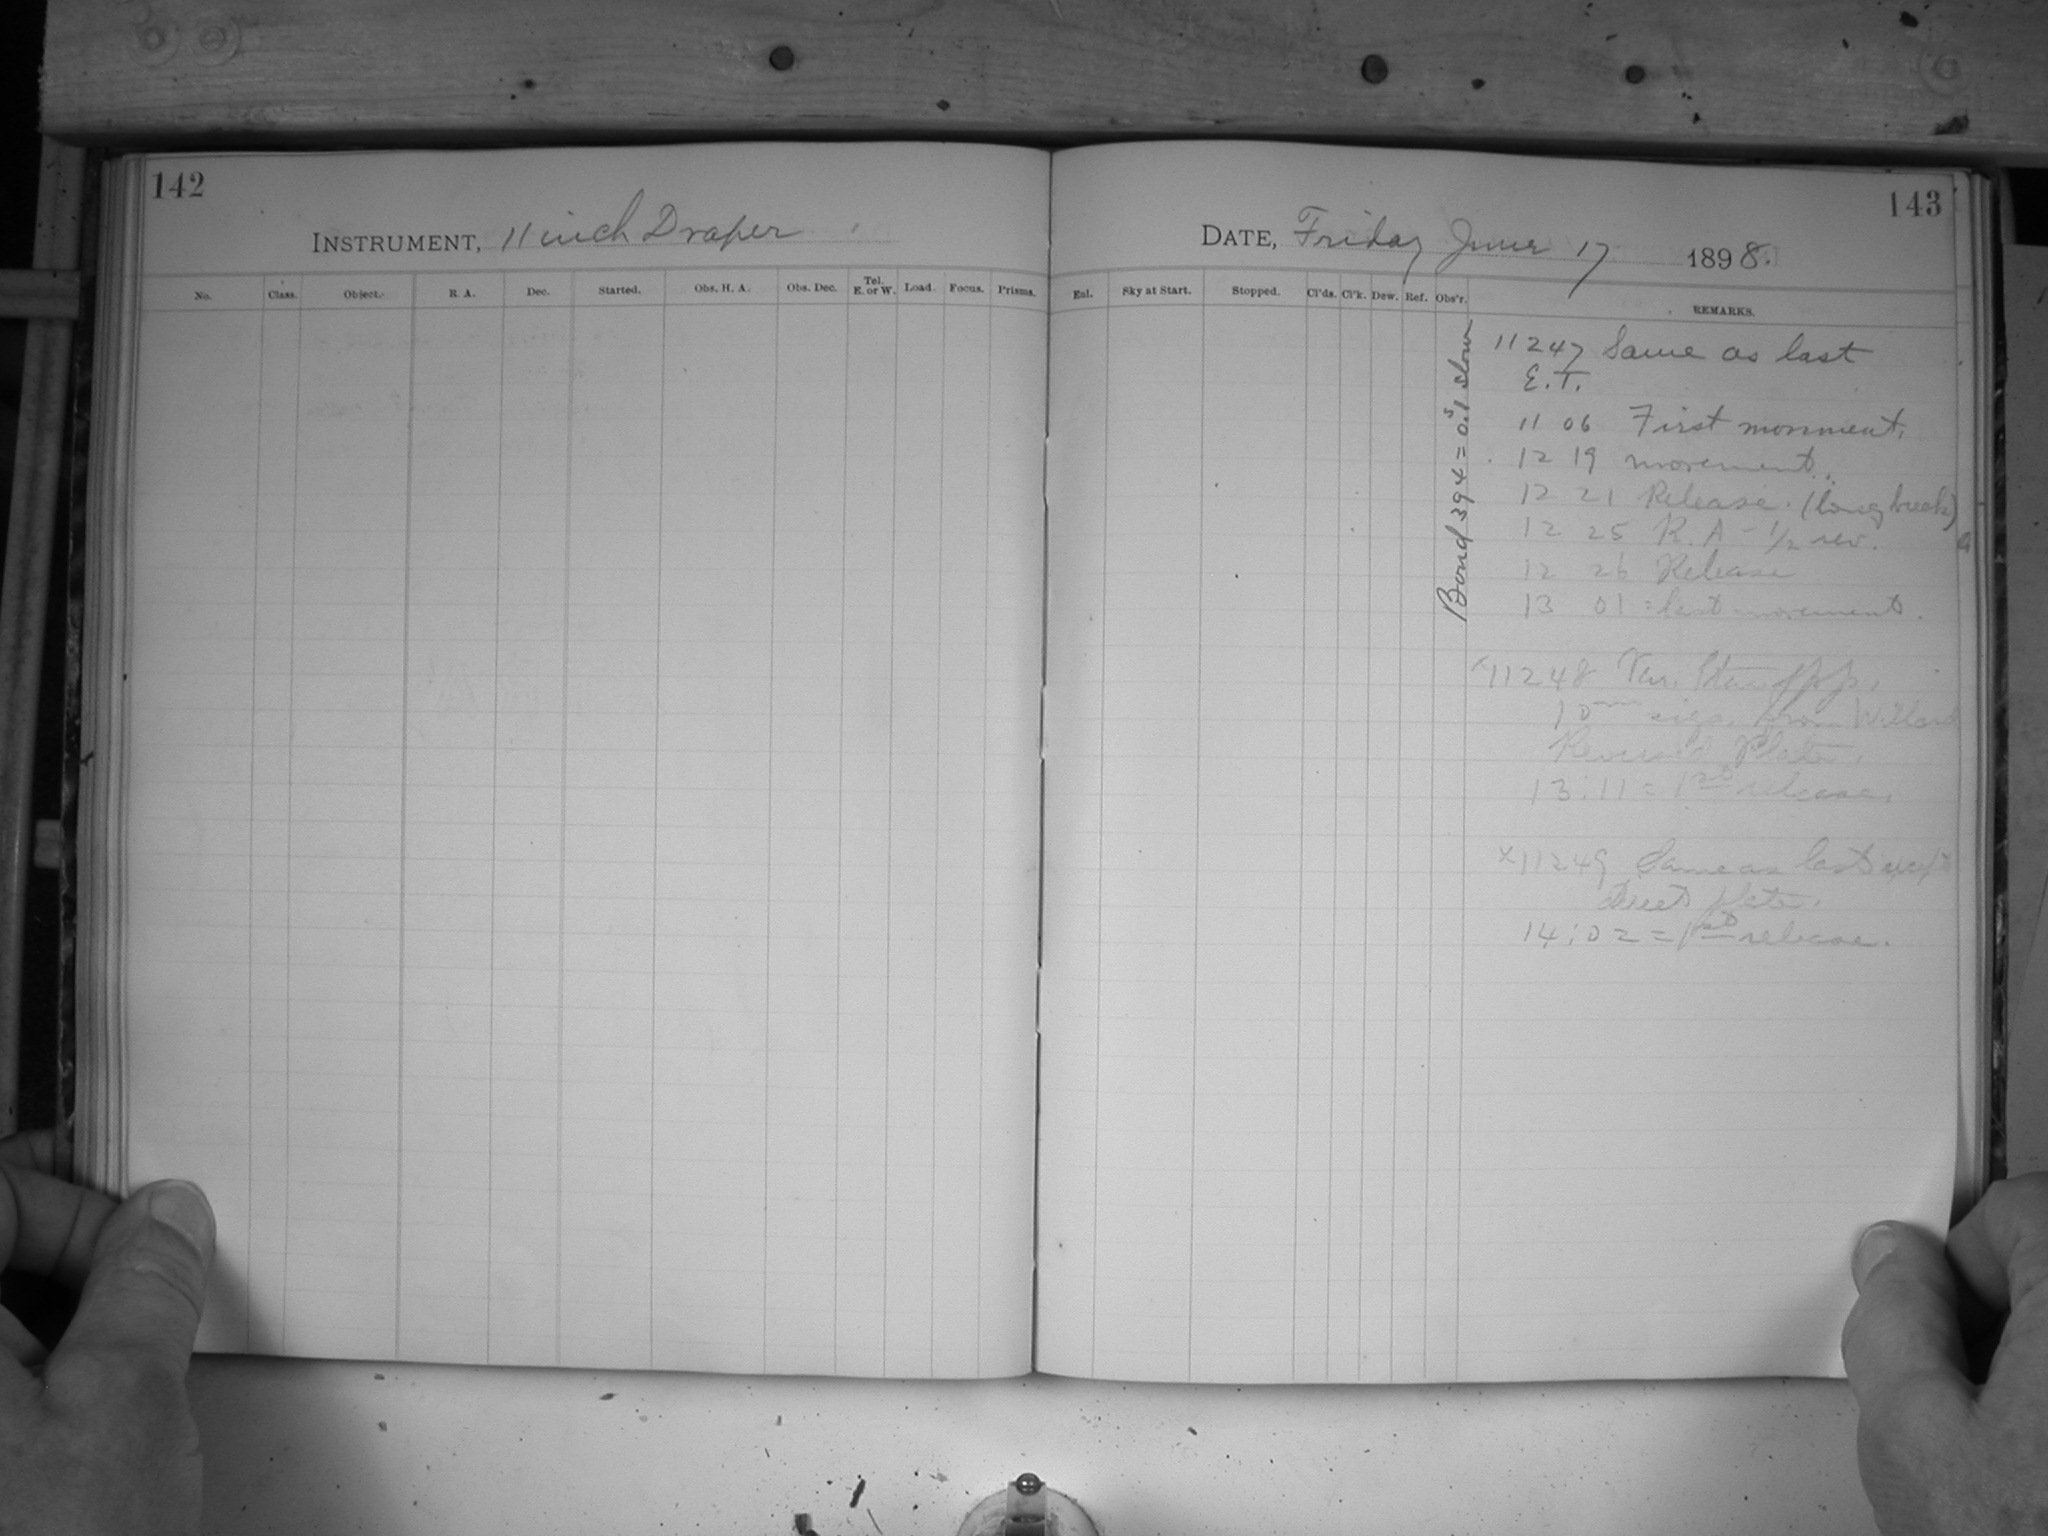 142
INSTRUMENT, 11 inch Draper
No. Class. Object. R. A. Dec. Started. Obs. H. A. Obs. Dec. Tel. E. or W. Load. Focus. Prisms.
143
DATE, Friday June 17 1898.
Enl. Sky at Start. Stopped. Cl'ds. Cl'k. Dew. Ref. Obs'r. REMARKS.
Bond 394 = 0.1s slow
11247 Same as last
E.T.
11 06 First movement.
12 19 movement.
12 21 Release. (long break)
12 25 R.A - 1/2 rev.
12 26 Release
13 01 = last movement.
x11248 Var. Star
10m sigs. from Willard
Reversed Plate.
13:11 = 1st release.
x11249 Same as last except
direct plate.
14:02 = 1st release.